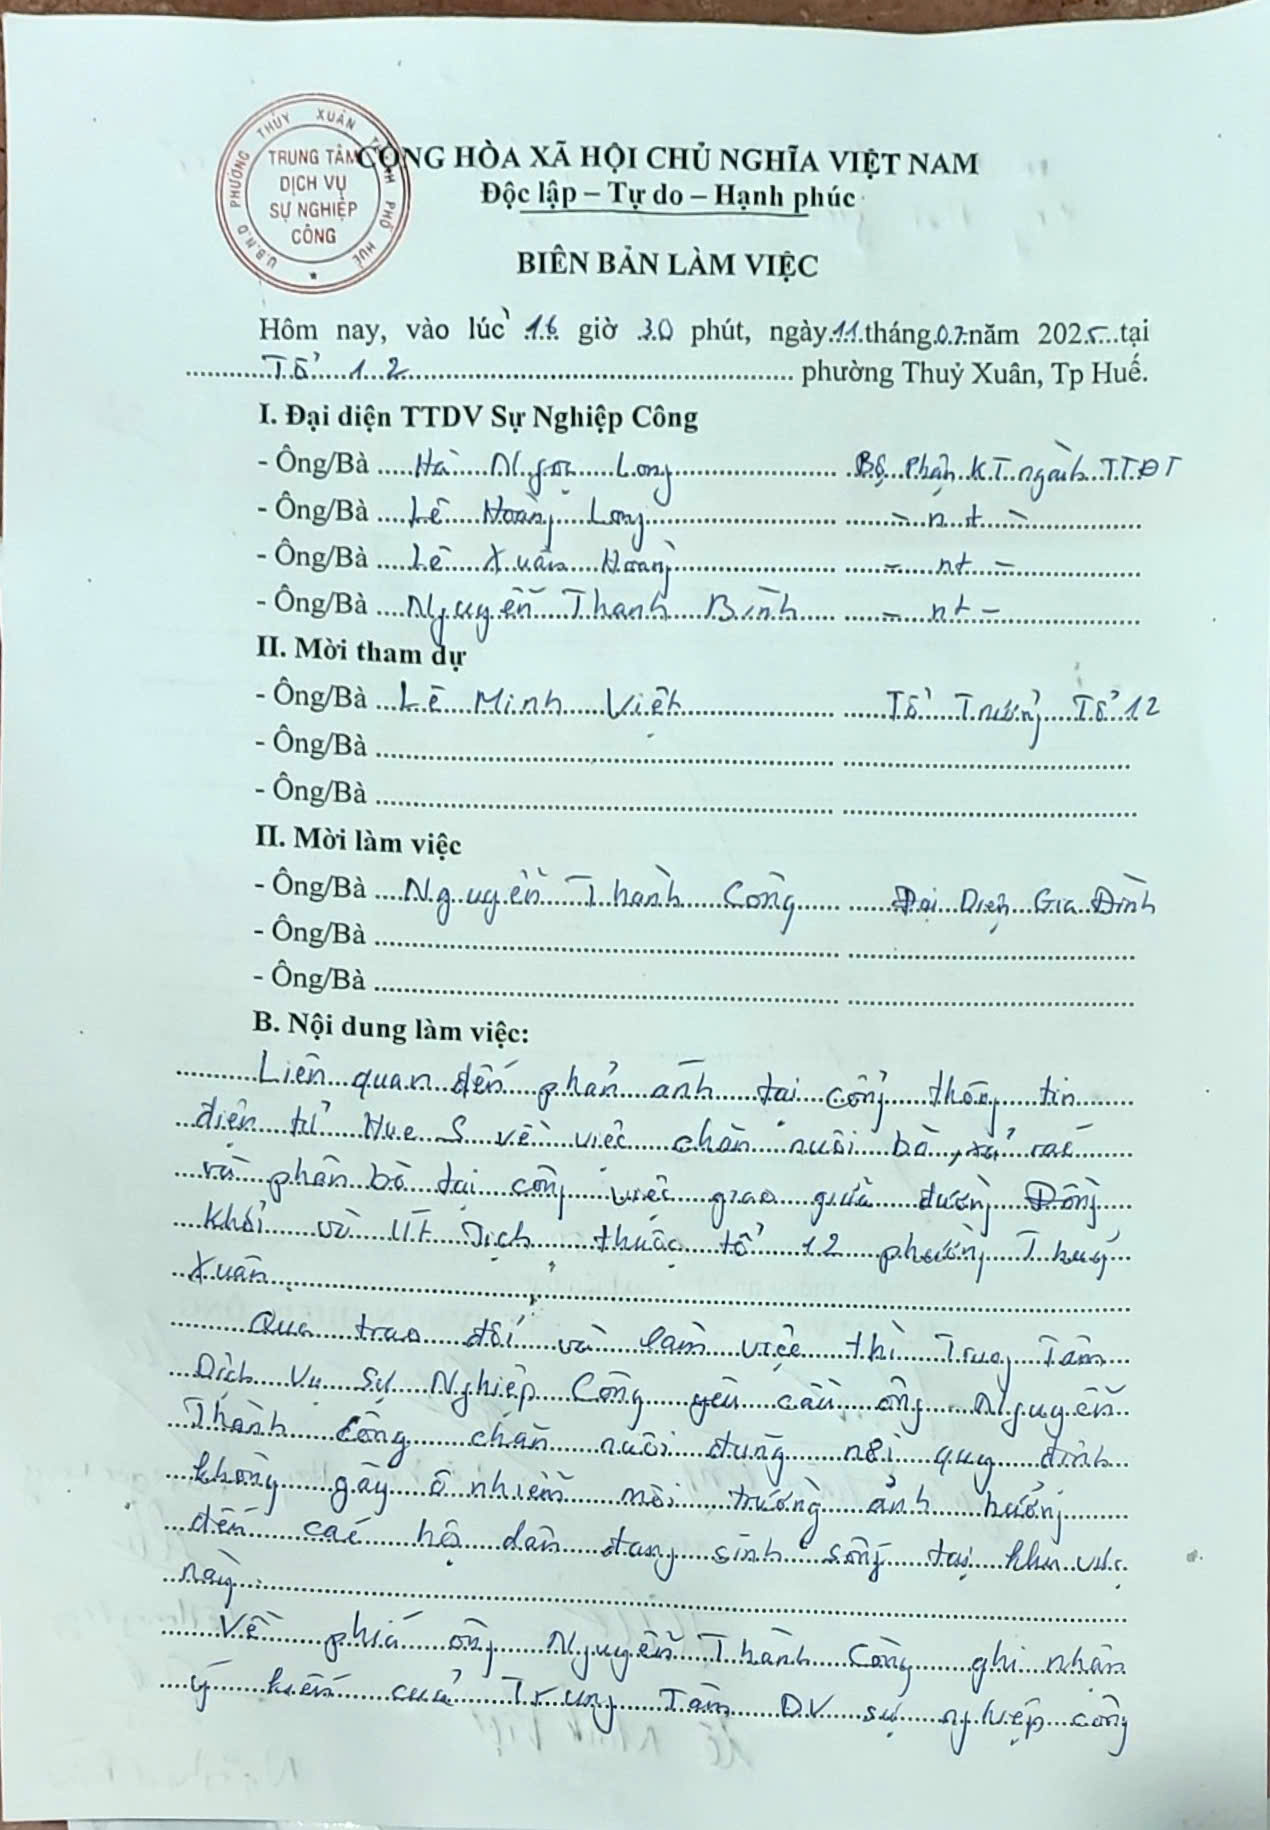 U.B.N.D PHƯỜNG THỦY XUÂN THÀNH PHỐ HUẾ
TRUNG TÂM
DỊCH VỤ
SỰ NGHIỆP
CÔNG
CỘNG HÒA XÃ HỘI CHỦ NGHĨA VIỆT NAM
Độc lập – Tự do – Hạnh phúc
BIÊN BẢN LÀM VIỆC
Hôm nay, vào lúc 16 giờ 30 phút, ngày 11 tháng 07 năm 2025 tại
Tổ 12 phường Thuỷ Xuân, Tp Huế.
I. Đại diện TTDV Sự Nghiệp Công
- Ông/Bà Hà Ngọc Long Bộ phận KT ngành TTĐT
- Ông/Bà Lê Hoàng Long - nt -
- Ông/Bà Lê Xuân Hoàng - nt -
- Ông/Bà Nguyễn Thanh Bình - nt -
II. Mời tham dự
- Ông/Bà Lê Minh Việt Tổ Trưởng Tổ 12
- Ông/Bà
- Ông/Bà
II. Mời làm việc
- Ông/Bà Nguyễn Thành Công Đại Diện Gia Đình
- Ông/Bà
- Ông/Bà
B. Nội dung làm việc:
Liên quan đến phản ánh tại cổng thông tin
điện tử Hue S về việc chăn nuôi bò, xả rác
và phân bò tại cống việc giao giữa đường Đồng
Khởi và Ưt Dịch thuộc tổ 12 phường Thuỷ
Xuân
Qua trao đổi và làm việc thì Trung Tâm
Dịch Vụ Sự Nghiệp Công yêu cầu ông Nguyễn
Thành Công chăn nuôi đúng nơi quy định
không gây ô nhiễm môi trường ảnh hưởng
đến các hộ dân đang sinh sống tại khu vực
này.
Về phía ông Nguyễn Thành Công ghi nhận
ý kiến của Trung Tâm DV sự nghiệp công